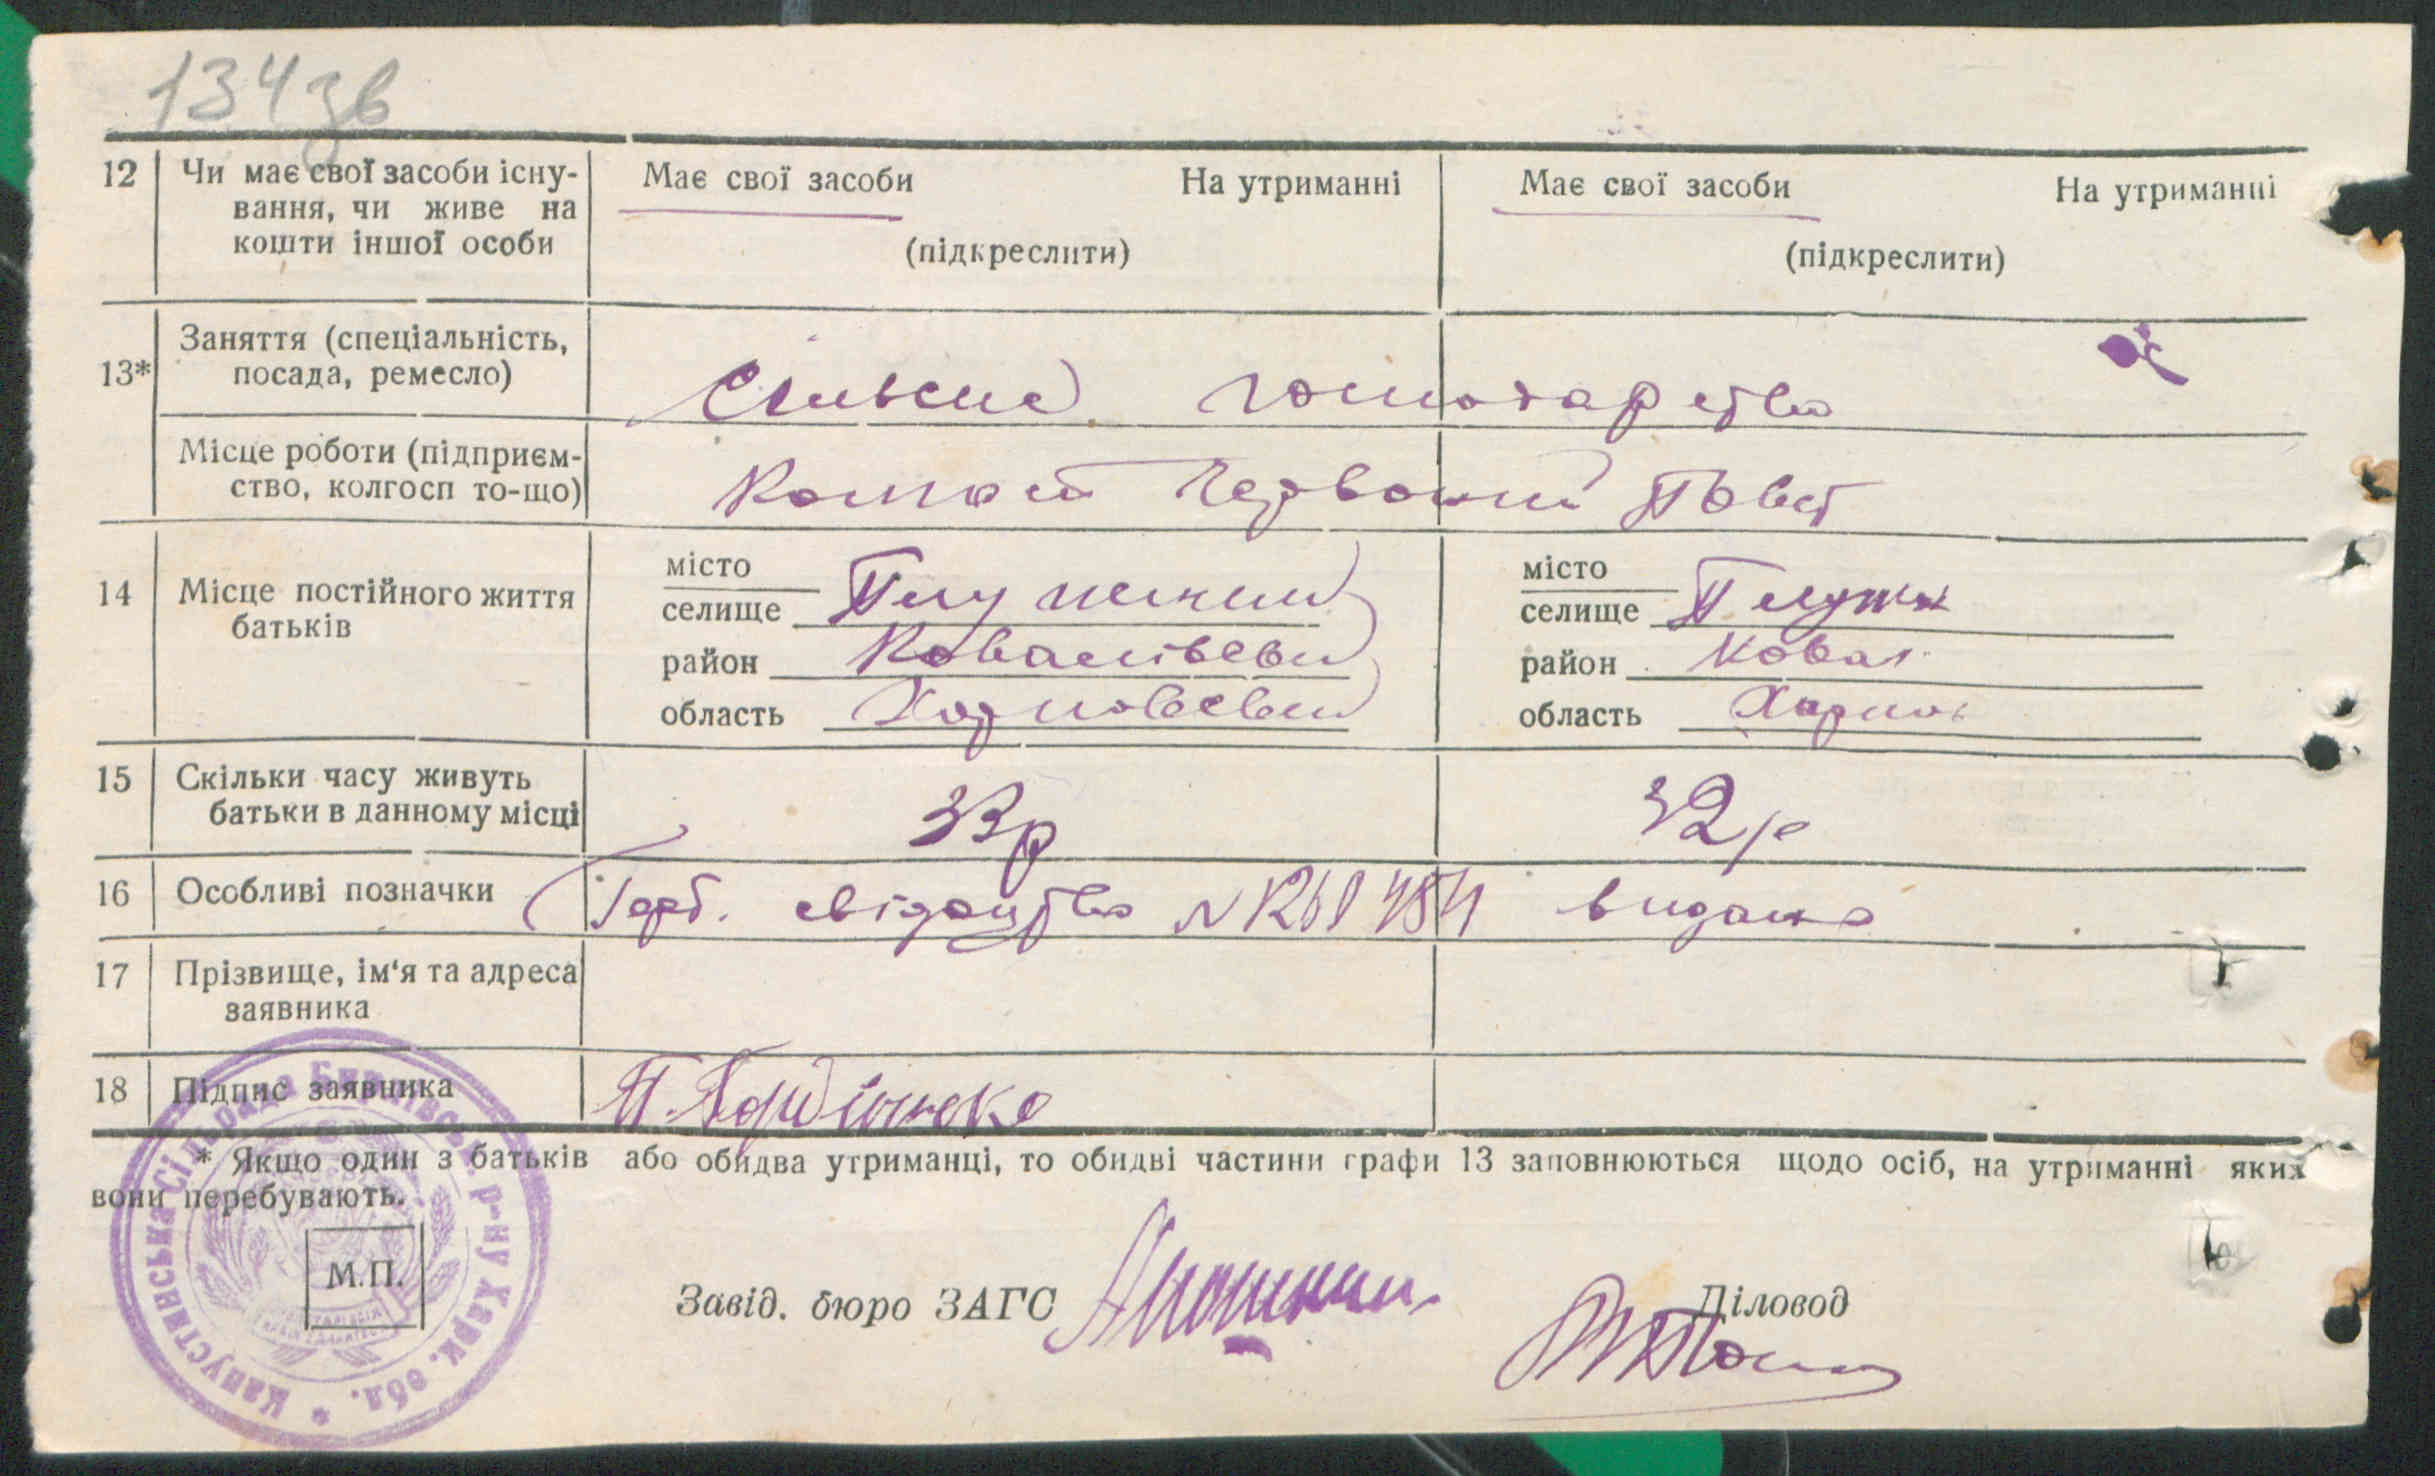 134 зв
12 Чи має свої засоби існу- Має свої засоби На утриманні Має свої засоби На утриманні
вання, чи живе на
кошти іншої особи (підкреслити) (підкреслити)
Заняття (спеціальність,
13* посада, ремесло) Сільське господарство
Місце роботи (підприєм-
ство, колгосп то-що) Червоний
місто місто
14 Місце постійного життя селище селище
батьків
район район Ковал
область Харковській область Харков
15 Скільки часу живуть
батьки в данному місці 33р 32р
16 Особливі позначки Герб. свідоцтво видано
17 Прізвище, ім'я та адреса
заявника
18 Підпис заявника
* Якщо один з батьків або обидва утриманці, то обидві частини графи 13 заповнюються щодо осіб, на утриманні яких
вони перебувають.
М.П.
Завід. бюро ЗАГС Діловод
Капустинська Сільрада р-ну Харк. обл. *